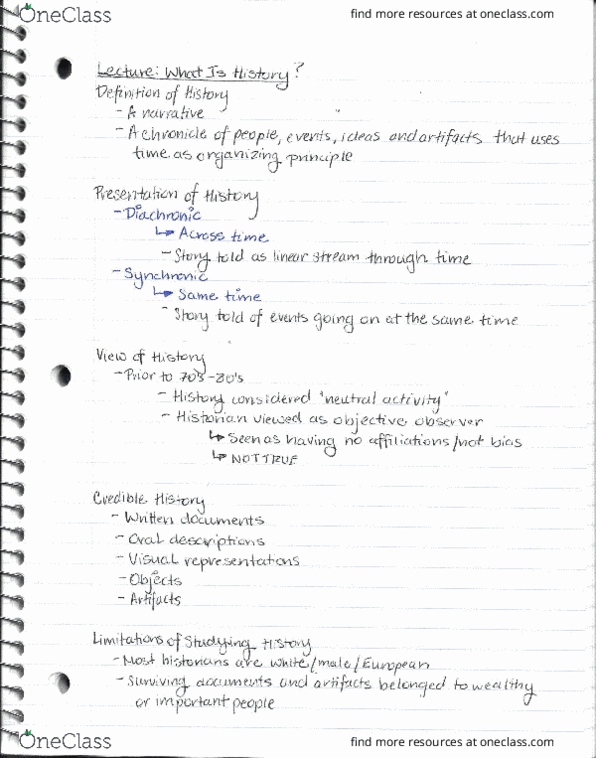 OneClass
find more resources at oneclass.com
Lecture: What Is History?
Definition of History
- A narrative
- A chronicle of people, events, ideas and artifacts that uses
time as organizing principle
Presentation of History
- Diachronic
↳ Across time
- Story told as linear stream through time
- Synchronic
↳ Same time
- Story told of events going on at the same time
View of History
- Prior to 70's-80's
- History considered "neutral activity"
- Historian viewed as objective observer
↳ Seen as having no affiliations/not bias
↳ NOT TRUE
Credible History
- Written documents
- Oral descriptions
- Visual representations
- Objects
- Artifacts
Limitations of Studying History
- Most historians are white/male/European
- Surviving documents and artifacts belonged to wealthy
or important people
OneClass
find more resources at oneclass.com